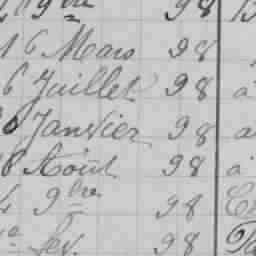 9bre 98
16 Mars 98
6 Juillet 98 a
0 Janvier 98 a
8 Août 98 a
4 9bre 98
98